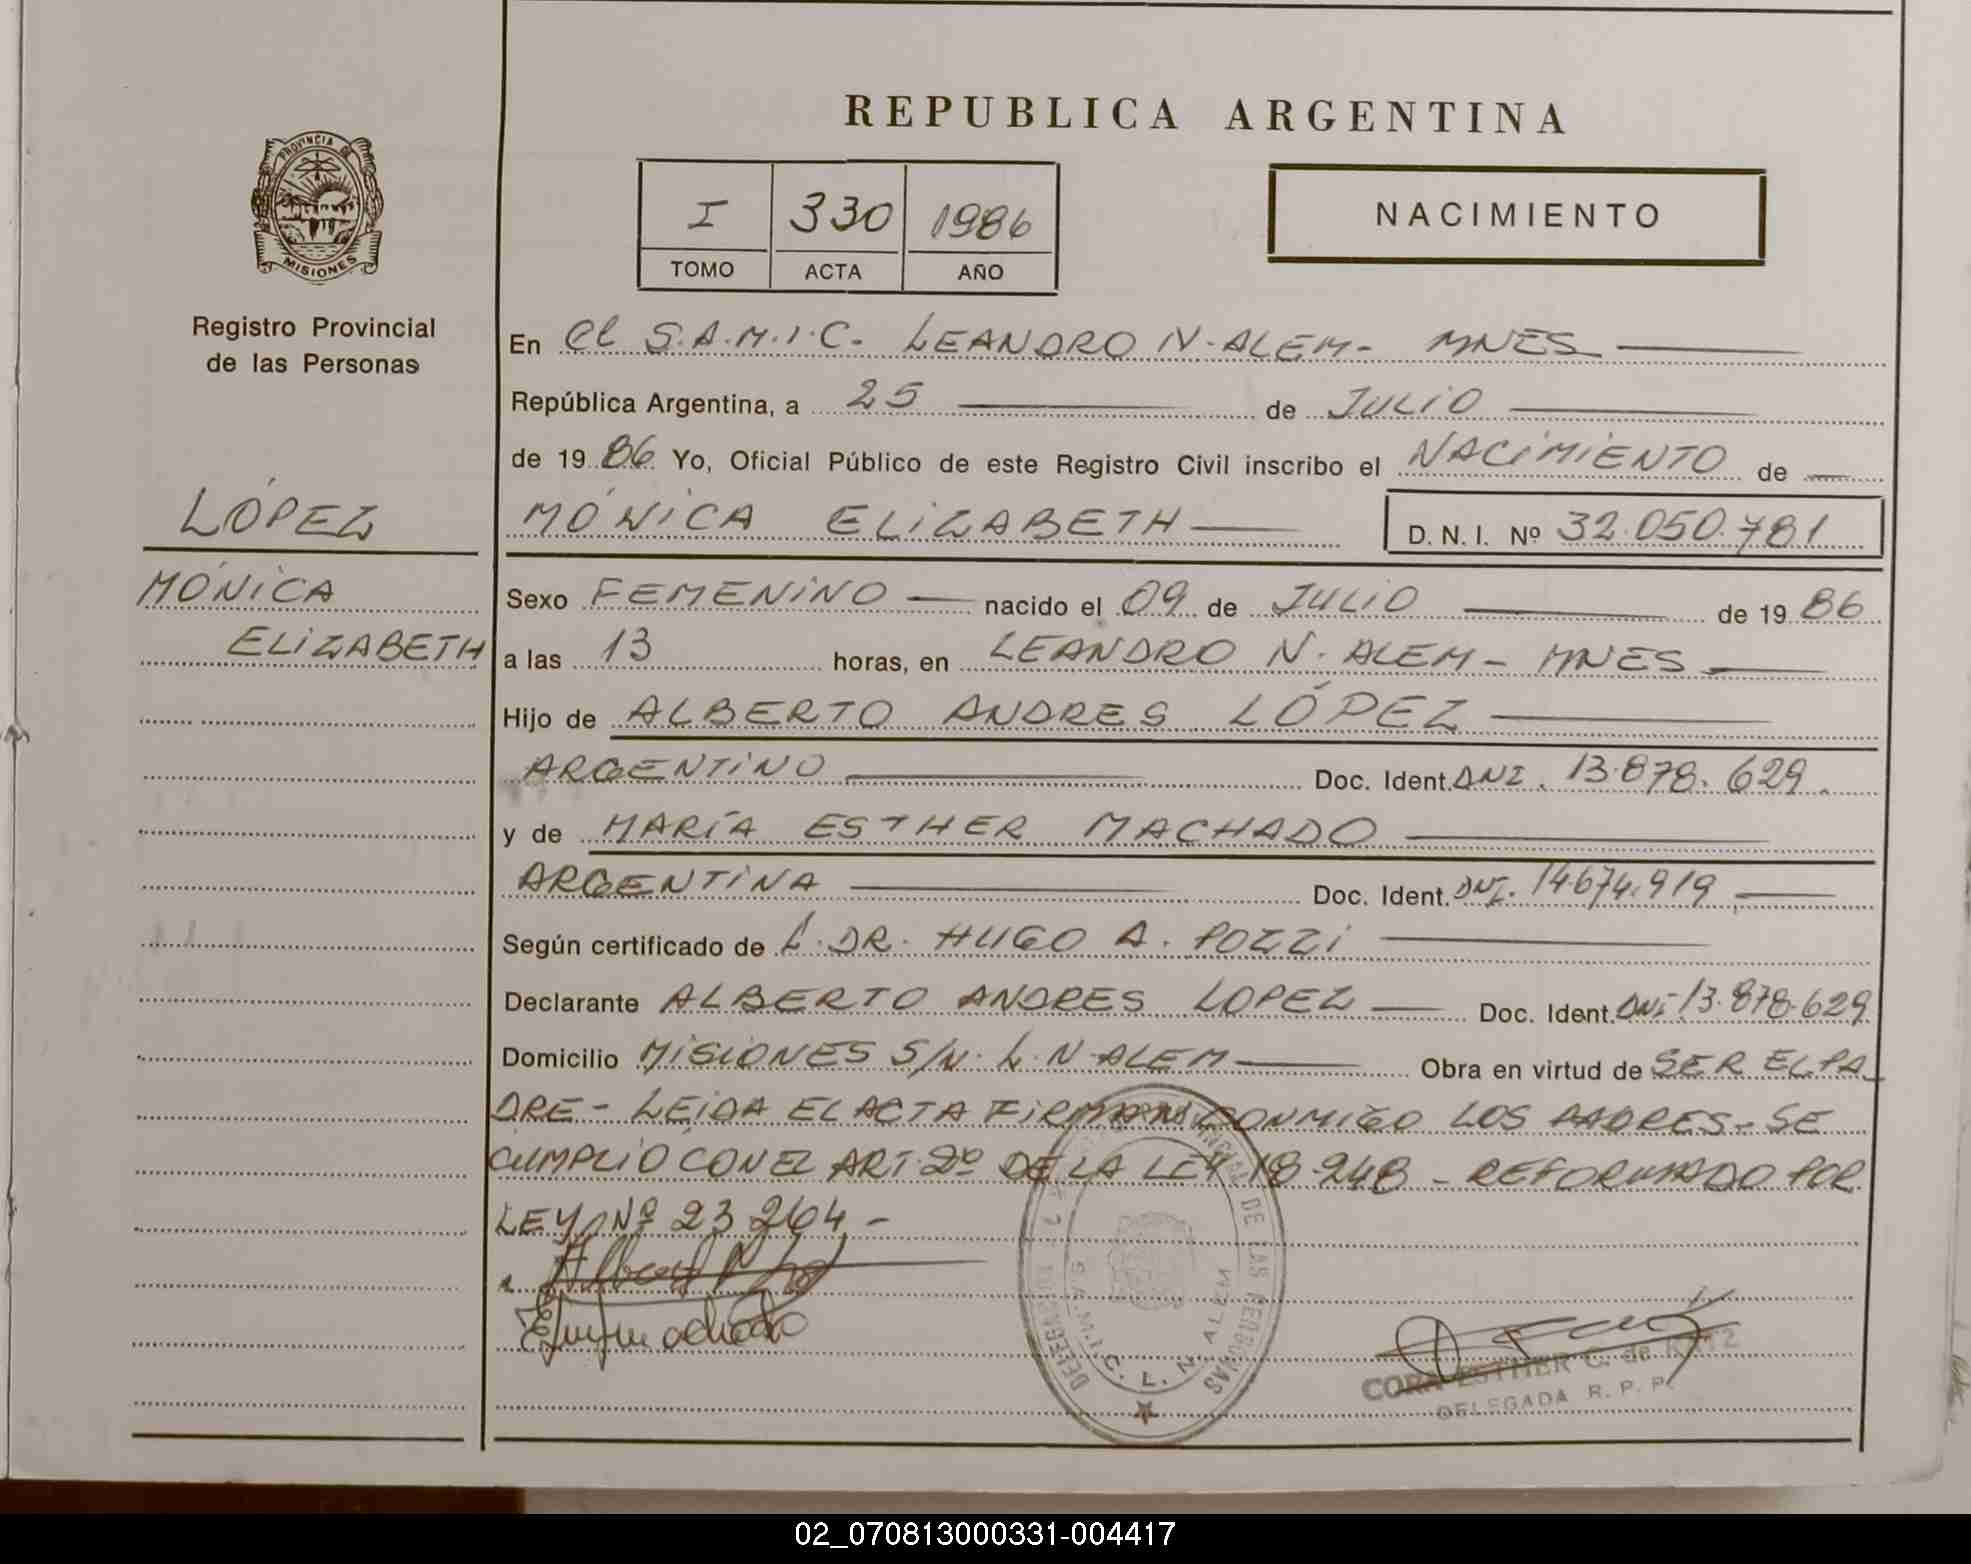 REPUBLICA ARGENTINA
PROVINCIA DE
MISIONES
Registro Provincial
de las Personas
I 330 1986
TOMO ACTA AÑO
NACIMIENTO
En el S.A.M.I.C. LEANDRO N. ALEM - MNES
República Argentina, a 25 de JULIO
de 19 86 Yo, Oficial Público de este Registro Civil inscribo el NACIMIENTO de
LÓPEZ
MÓNICA ELIZABETH D. N. I. Nº 32.050.781
MÓNICA
ELIZABETH
Sexo FEMENINO nacido el 09 de JULIO de 19 86
a las 13 horas, en LEANDRO N. ALEM - MNES
Hijo de ALBERTO ANDRES LÓPEZ
ARGENTINO Doc. Ident. DNI. 13.878.629.
y de MARÍA ESTHER MACHADO
ARGENTINA Doc. Ident. DNI. 14.674.919
Según certificado de L. DR. HUGO A. POZZI
Declarante ALBERTO ANDRES LOPEZ Doc. Ident. DNI 13.878.629
Domicilio MISIONES S/N. L. N. ALEM Obra en virtud de SER EL PA-
DRE - LEIDA EL ACTA FIRMAN CONMIGO LOS PADRES - SE
CUMPLIÓ CON EL ART. 2º DE LA LEY 18.248 - REFORMADO POR
LEY Nº 23264 -
DE LAS PERSONAS
S.A.M.I.C. L. N. ALEM
CORA ESTHER C. de KATZ
DELEGADA R. P. P.
02_070813000331-004417